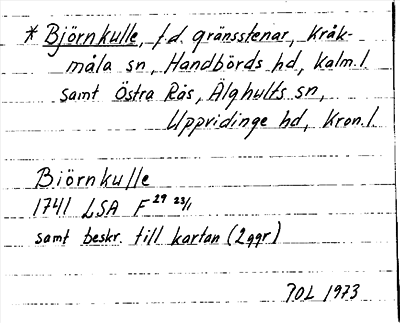 * Björnkulle, f.d. gränsstenar, Kråk-
måla sn, Handbörds hd, Kalm.l.
samt Östra Rås, Älghults sn,
Uppvidinge hd, Kron.l.
Biörnkulle
1741 LSA F 29 23/1
samt beskr. till kartan (2 ggr)
JOL 1973